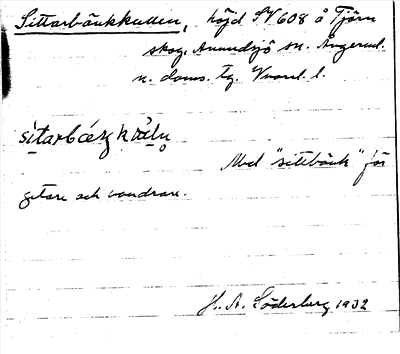 Sittarbänkkullen, höjd SV. 608 å Tjärn
skog, Anundsjö sn. Ångerml.
n. doms. tg. Vnorrl. l.
sìtarbǽŋkkùlņ
Med "sittbänk" för
getare och vandrare.
H. A. Söderberg 1932